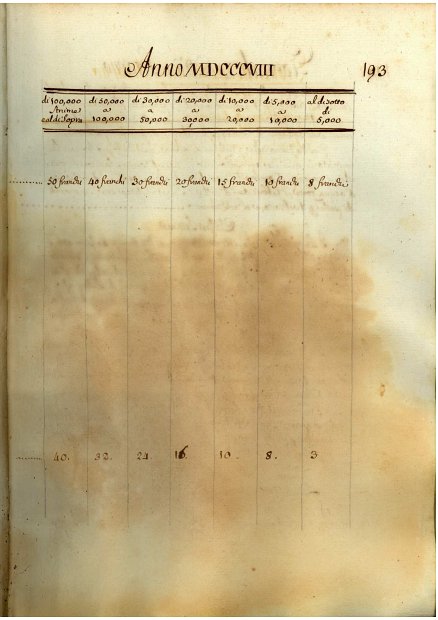 Anno MDCCCVIII 193
di 100,000 di 50,000 di 30,000 di 20,000 di 10,000 di 5,000 al disotto
Anime a a a a a di
e al di Sopra 100,000 50,000 30,000 20,000 10,000 5,000
50 franchi 40 franchi 30 franchi 20 franchi 15 franchi 10 franchi 8 franchi
40. 32. 24 16. 10. 8. 3